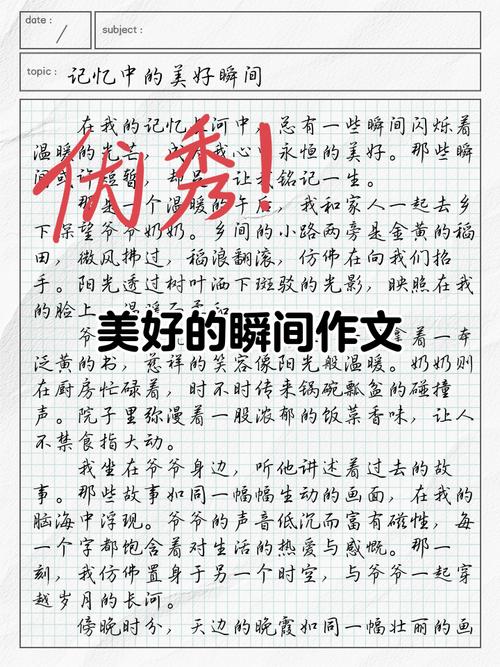 date :
subject :
topic : 记忆中的美好瞬间
在我的记忆长河中，总有一些瞬间闪烁着
温暖的光芒，成为我心中永恒的美好。那些瞬
间或许短暂，却足以让我铭记一生。
优秀!
那是一个温暖的午后，我和家人一起去乡
下探望爷爷奶奶。乡间的小路两旁是金黄的稻
田，微风拂过，稻浪翻滚，仿佛在向我们招
手。阳光透过树叶洒下斑驳的光影，映照在我
的脸上，温暖而柔和
美好的瞬间作文
爷 拿着一本
泛黄的书，慈祥的笑容像阳光般温暖。奶奶则
在厨房忙碌着，时不时传来锅碗瓢盆的碰撞
声。院子里弥漫着一股浓郁的饭菜香味，让人
不禁食指大动。
我坐在爷爷身边，听他讲述着过去的故
事。那些故事如同一幅幅生动的画面，在我的
脑海中浮现。爷爷的声音低沉而富有磁性，每
一个字都饱含着对生活的热爱与感慨。那一
刻，我仿佛置身于另一个时空，与爷爷一起穿
越岁月的长河。
傍晚时分，天边的晚霞如同一幅壮丽的画